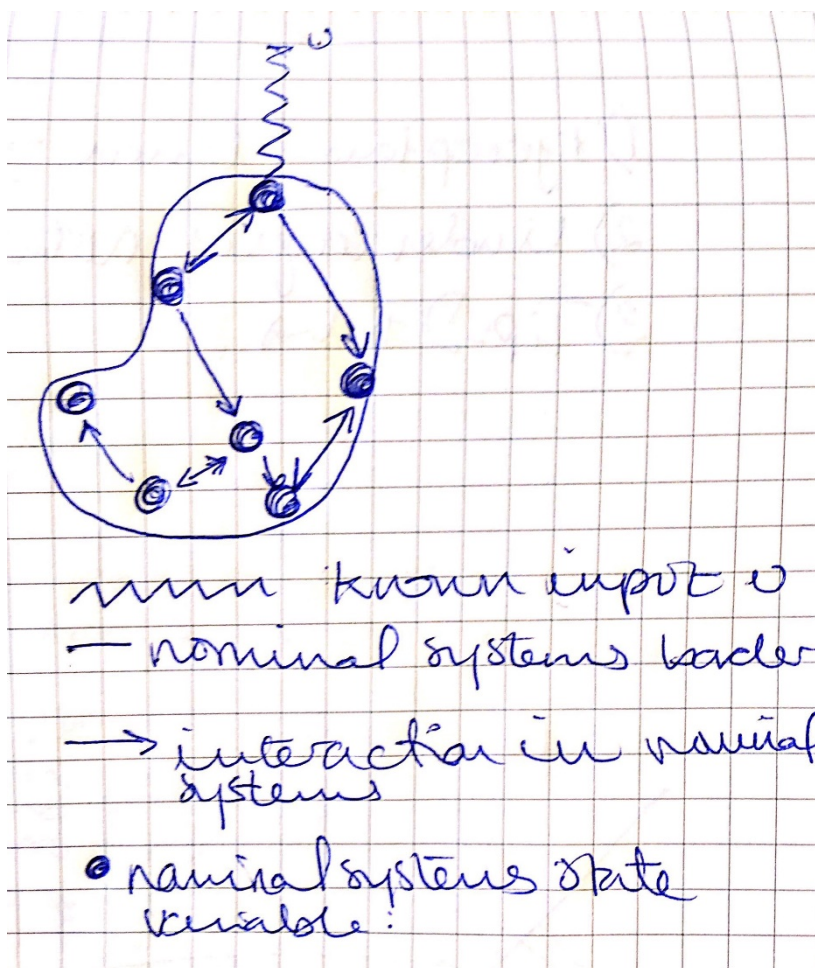 u
known input u
nominal systems border
interaction in nominal
systems
nominal systems state
variable: